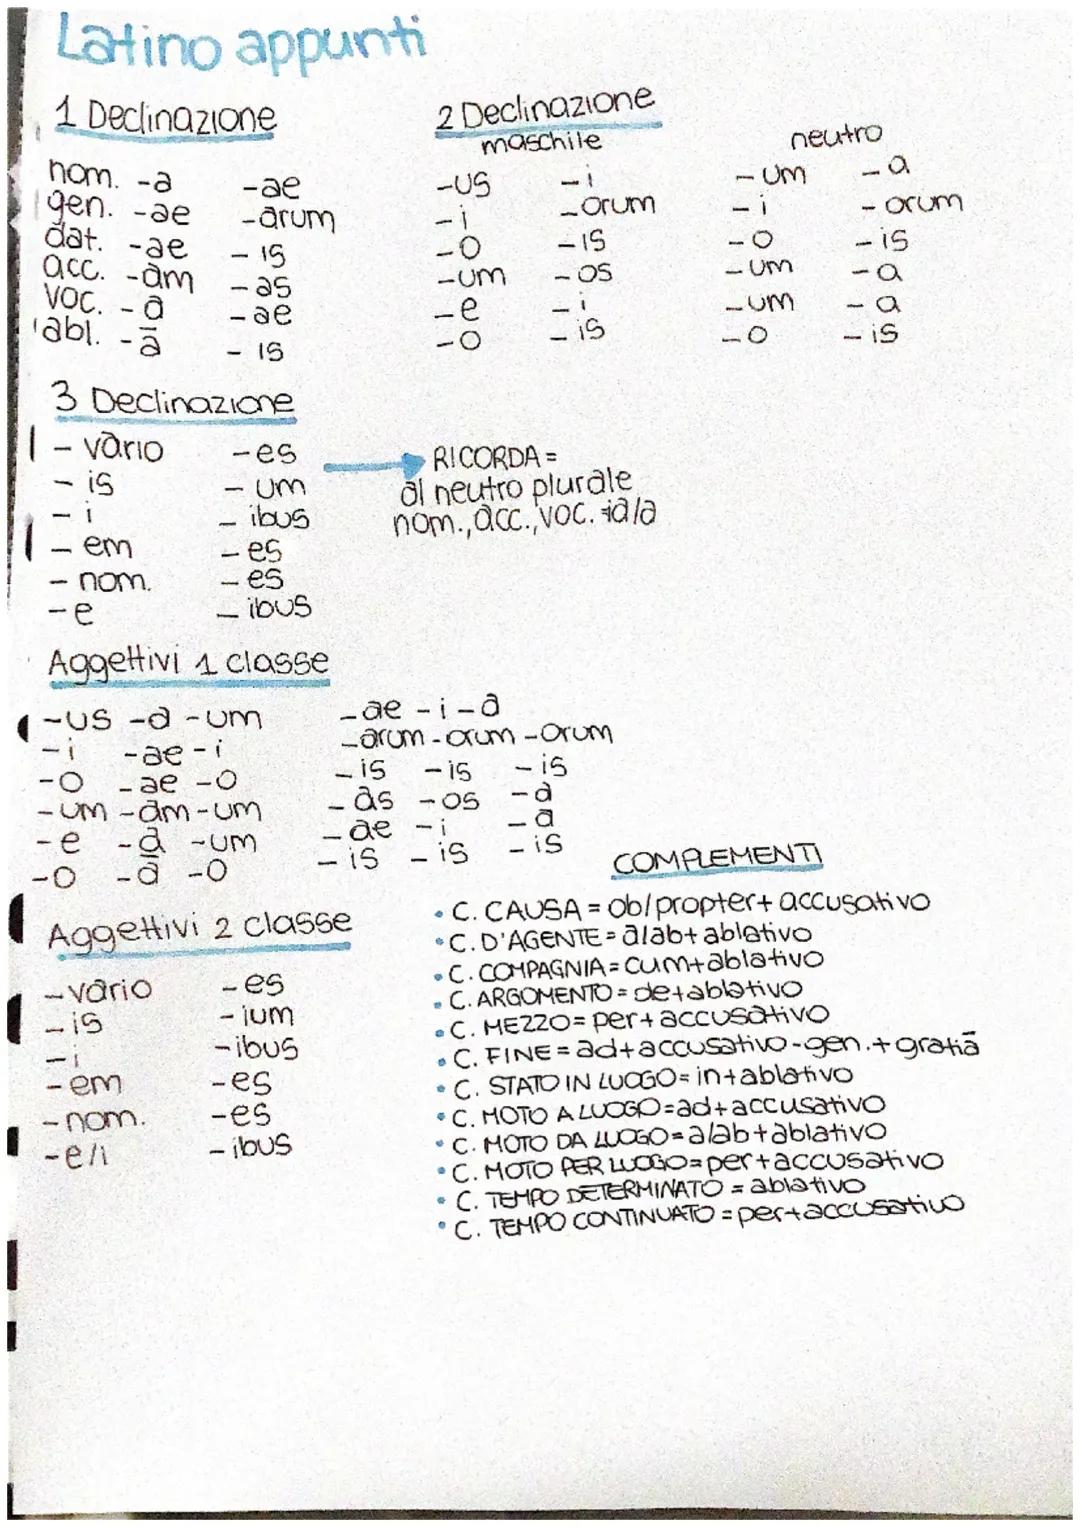 Latino appunti
1 Declinazione
nom. -a -ae
gen. -ae -arum
dat. -ae -is
acc. -am -as
voc. -a -ae
abl. -ā -is
2 Declinazione
maschile
-us -i
-i -orum
-o -is
-um -os
-e -i
-o -is
neutro
-um -a
-i -orum
-o -is
-um -a
-um -a
-o -is
3 Declinazione
-vario -es
-is -um
-i -ibus
-em -es
-nom. -es
-e -ibus
RICORDA=
al neutro plurale
nom., acc., voc. =ia/a
Aggettivi 1 classe
-us -a -um -ae -i -a
-i -ae -i -arum -orum -orum
-o -ae -o -is -is -is
-um -am -um -as -os -a
-e -a -um -ae -i -a
-o -ā -o -is -is -is
Aggettivi 2 classe
-vario -es
-is -ium
-i -ibus
-em -es
-nom. -es
-e/i -ibus
COMPLEMENTI
• C. CAUSA = ob/propter+ accusativo
• C. D'AGENTE = a/ab+ ablativo
• C. COMPAGNIA = cum+ablativo
• C. ARGOMENTO = de+ablativo
• C. MEZZO = per+ accusativo
• C. FINE = ad+accusativo-gen.+ gratiā
• C. STATO IN LUOGO= in+ablativo
• C. MOTO A LUOGO=ad+accusativo
• C. MOTO DA LUOGO=a/ab+ablativo
• C. MOTO PER LUOGO=per+accusativo
• C. TEMPO DETERMINATO = ablativo
• C. TEMPO CONTINUATO =per+accusativo